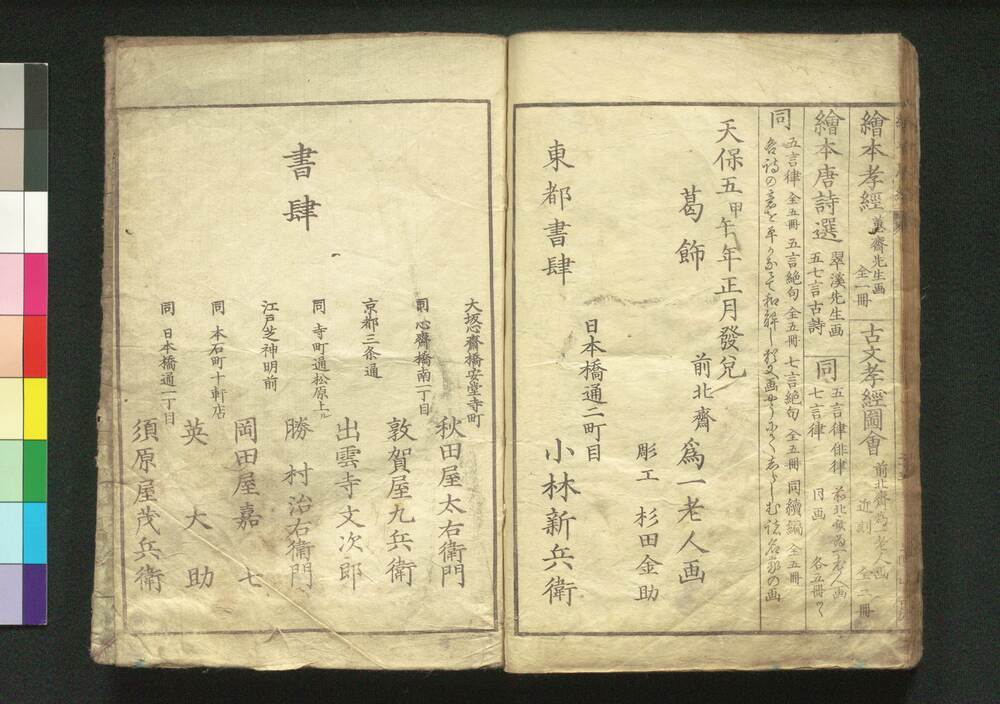 繪本孝經 蕙齋先生画 全一冊 古文孝經圖會 前北齋為一老人画 近刻 全二冊
繪本唐詩選 翠溪先生画 五七言古詩 同 五言律 俳律 七言律 前北齋為一老人画 各五冊
同 五言律 全五冊 五言絶句 全五冊 七言絶句 全五冊 同續編 全五冊
天保五甲午年正月發兌
葛飾 前北齋爲一老人画
彫工 杉田金助
東都書肆 日本橋通二町目 小林新兵衛
書肆
大坂心齋橋安堂寺町 秋田屋太右衛門
同 心齋橋南一丁目 敦賀屋九兵衛
京都三条通 出雲寺文次郎
同 寺町通松原上ル 勝村治右衛門
江戸芝神明前 岡田屋嘉七
同 本石町十軒店 英大助
同 日本橋通一丁目 須原屋茂兵衛